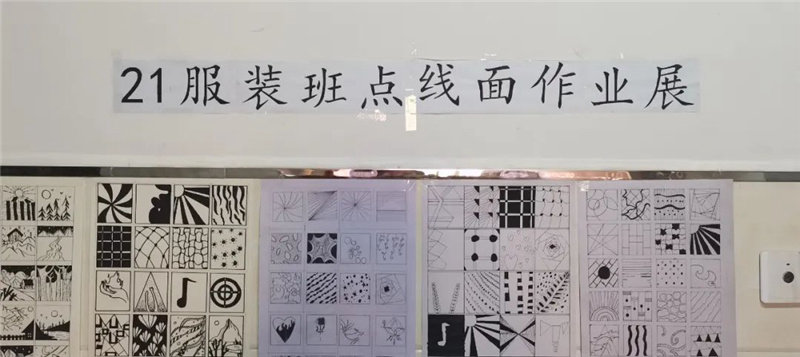 21服装班点线面作业展